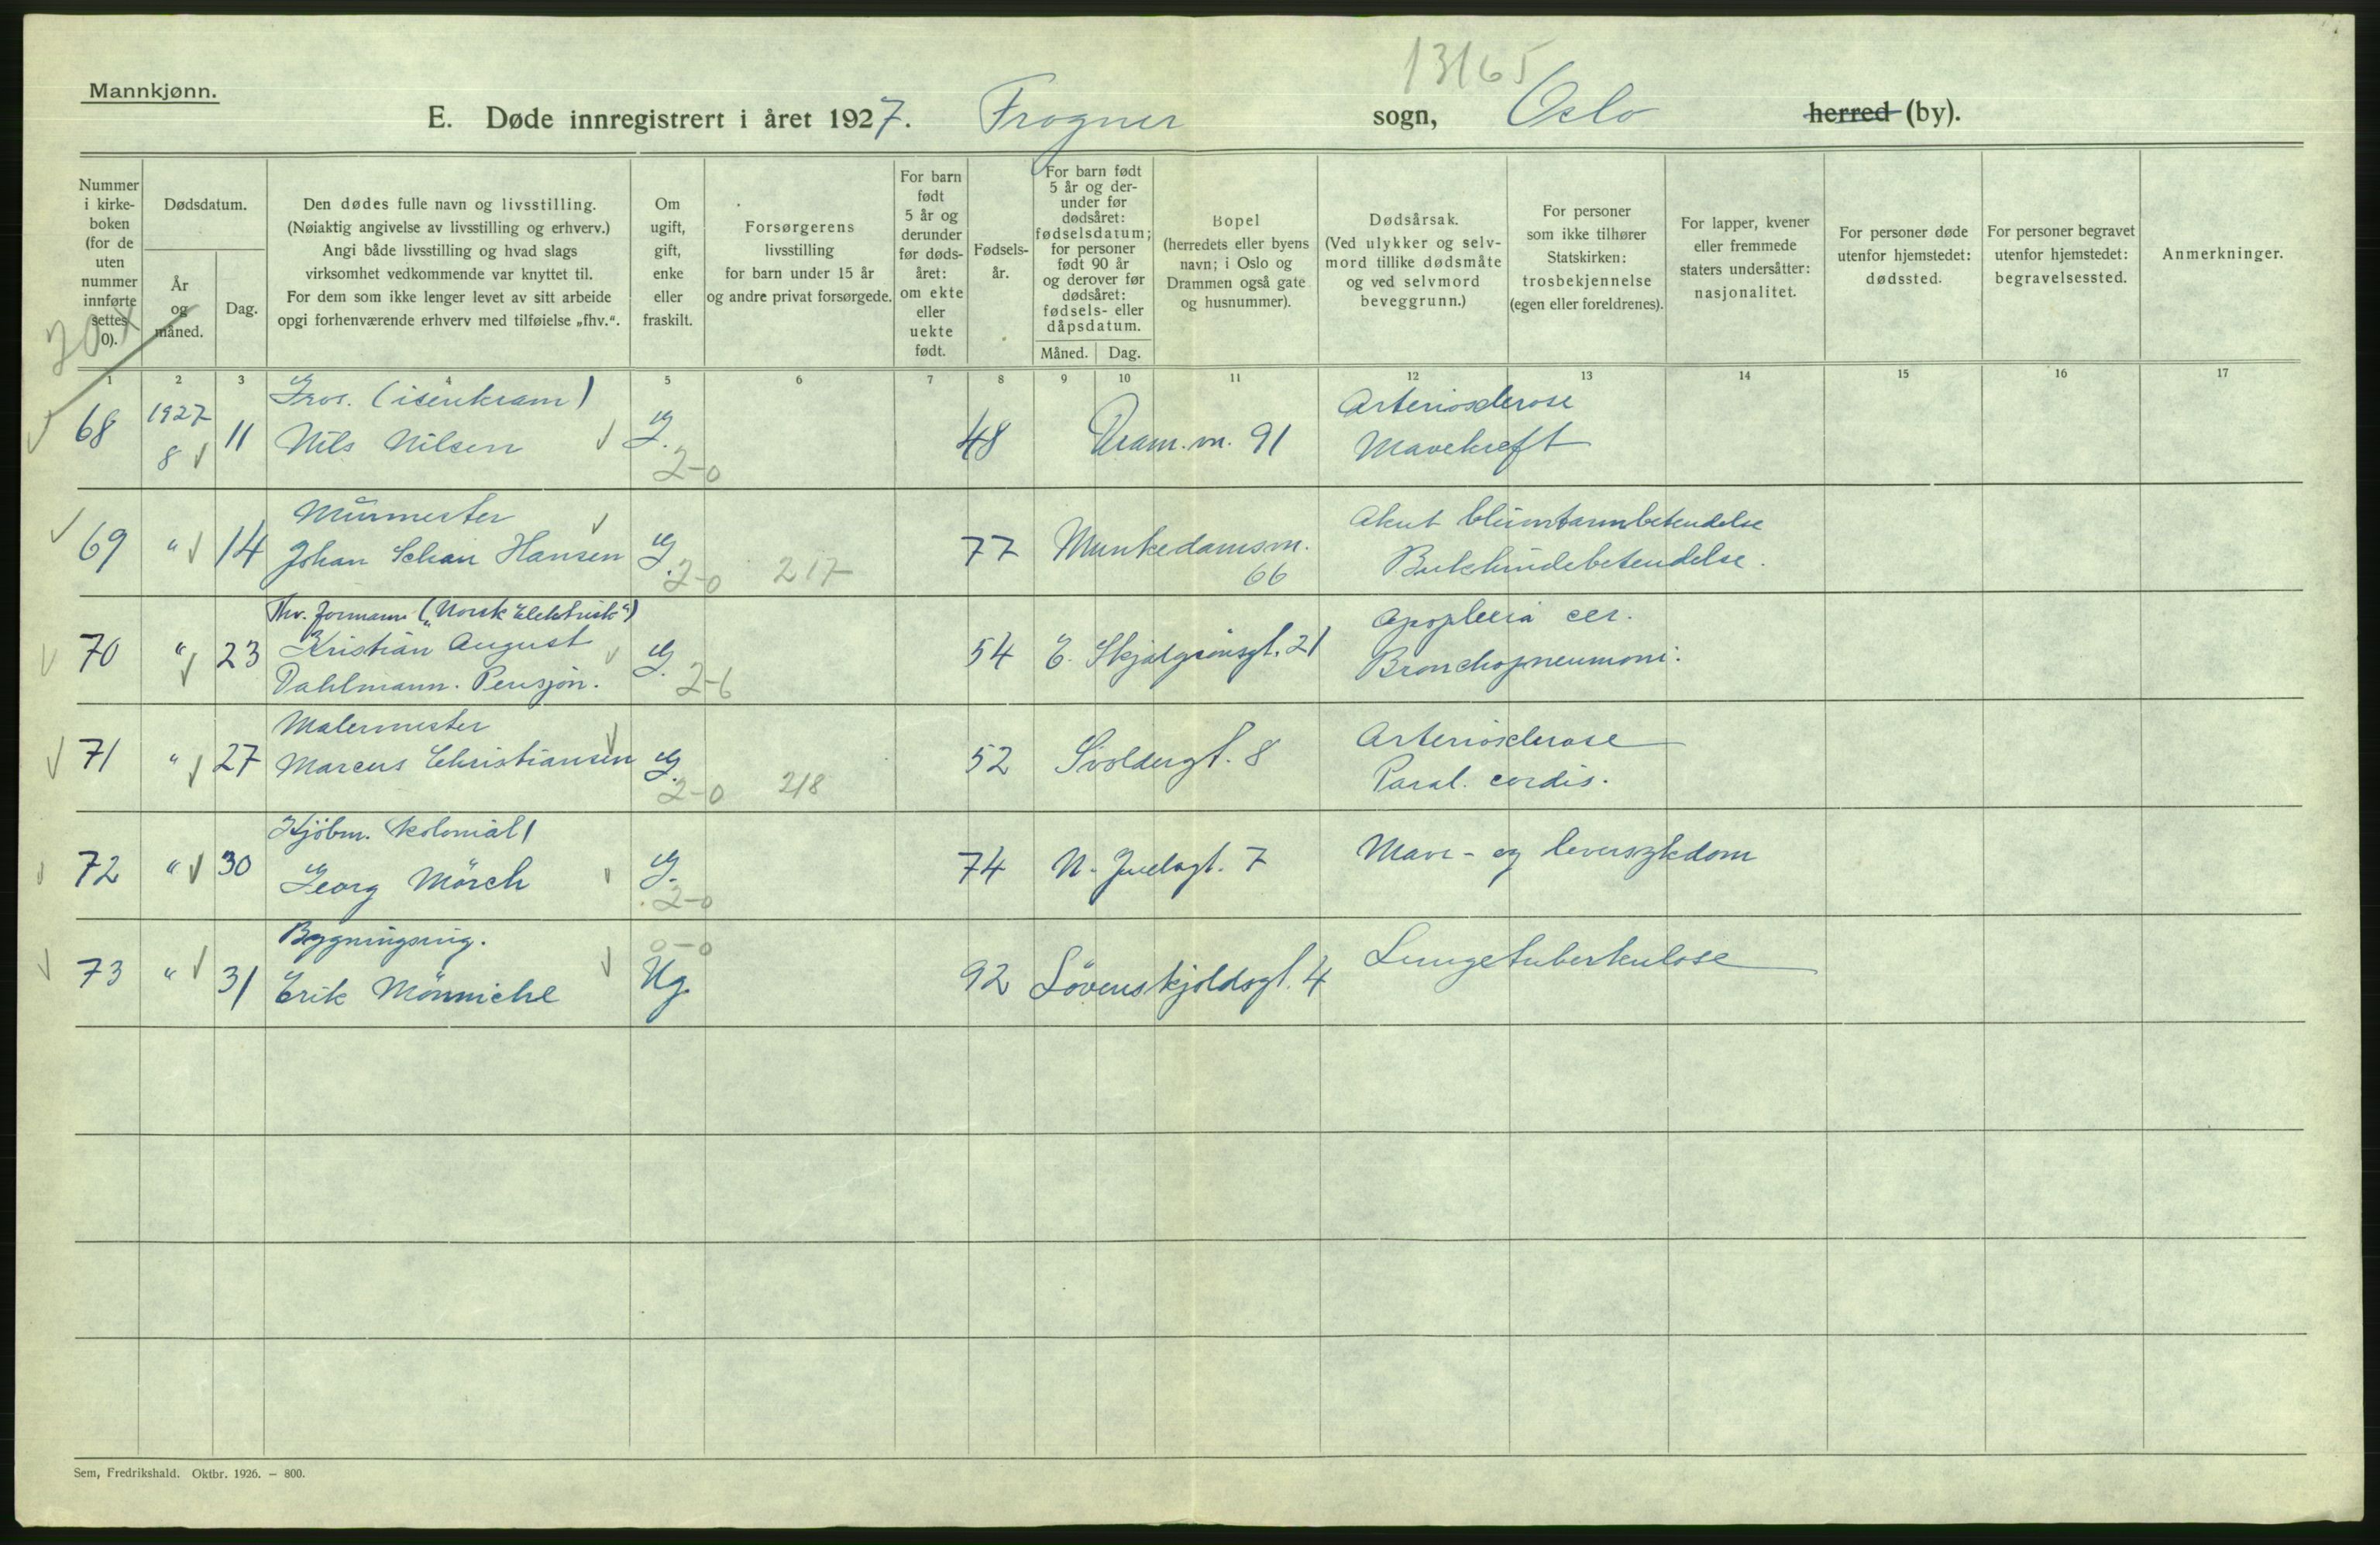 13165
Mannkjønn.
E. Døde innregistrert i året 1927. Frogner sogn, Oslo herred (by).
Nummer i kirke-boken (for de uten nummer innførte settes 0).
Dødsdatum.
År og måned.
Dag.
Den dødes fulle navn og livsstilling.
(Nøiaktig angivelse av livsstilling og erhverv.)
Angi både livsstilling og hvad slags
virksomhet vedkommende var knyttet til.
For dem som ikke lenger levet av sitt arbeide
opgi forhenværende erhverv med tilføielse „fhv.“.
Om ugift, gift, enke eller fraskilt.
Forsørgerens
livsstilling
for barn under 15 år
og andre privat forsørgede.
For barn født 5 år og derunder før døds-året: om ekte eller uekte født.
Fødsels-år.
For barn født 5 år og der-under før dødsåret: fødselsdatum; for personer født 90 år og derover før dødsåret: fødsels- eller dåpsdatum.
Måned. Dag.
Bopel
(herredets eller byens
navn; i Oslo og
Drammen også gate
og husnummer).
Dødsårsak.
(Ved ulykker og selv-
mord tillike dødsmåte
og ved selvmord
beveggrunn.)
For personer
som ikke tilhører
Statskirken:
trosbekjennelse
(egen eller foreldrenes).
For lapper, kvener
eller fremmede
staters undersåtter:
nasjonalitet.
For personer døde
utenfor hjemstedet:
dødssted.
For personer begravet
utenfor hjemstedet:
begravelsessted.
Anmerkninger.
1 2 3 4 5 6 7 8 9 10 11 12 13 14 15 16 17
Gros. (isenkram) Arteriosclerose
68 1927 8 11 Nils Nilsen G. 2-0 48 Dram.vn. 91 Mavekreft
Murmester Akut blindtarmbetendelse
69 " 14 Johan Schau Hansen G. 2-0 217 77 Munkedamsvn. 66 Bukhindebetendelse.
Fhv. formann („Norsk Elektrisk“) Apoplexia cer.
70 " 23 Kristian August G. 2-6 54 E. Skjalgssønsgt. 21 Bronchopneumoni.
Dahlmann. Pensjon.
Malermester Arteriosclerose
71 " 27 Marcus Christiansen G. 2-0 218 52 Svoldergt. 8 Paral. cordis.
Kjøbm. kolonial)
72 " 30 Georg Mörch G. 2-0 74 N. Juelsgt. 7 Mave- og leversykdom
Bygningsing. 0-0
73 " 31 Erik Mönniche Ug. 92 Lövenskjoldsgt. 4 Lungetuberkulose
Sem, Fredrikshald. Oktbr. 1926. — 800.